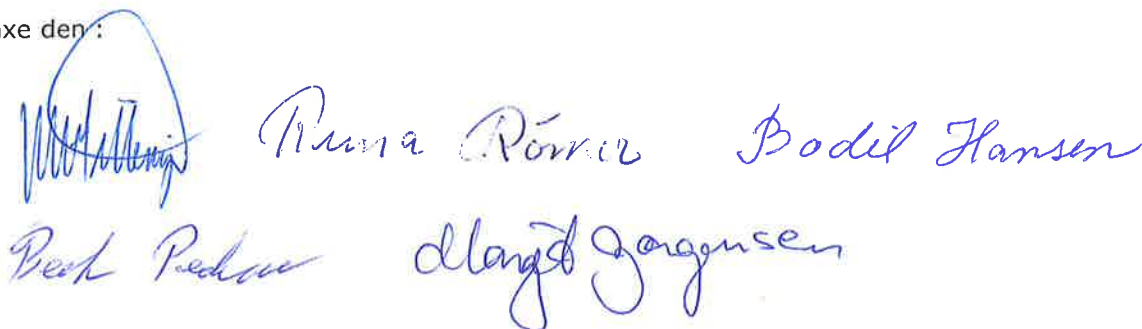 axe den :
Runa Römer Bodil Hansen
Bech Pedersen Margit Jørgensen